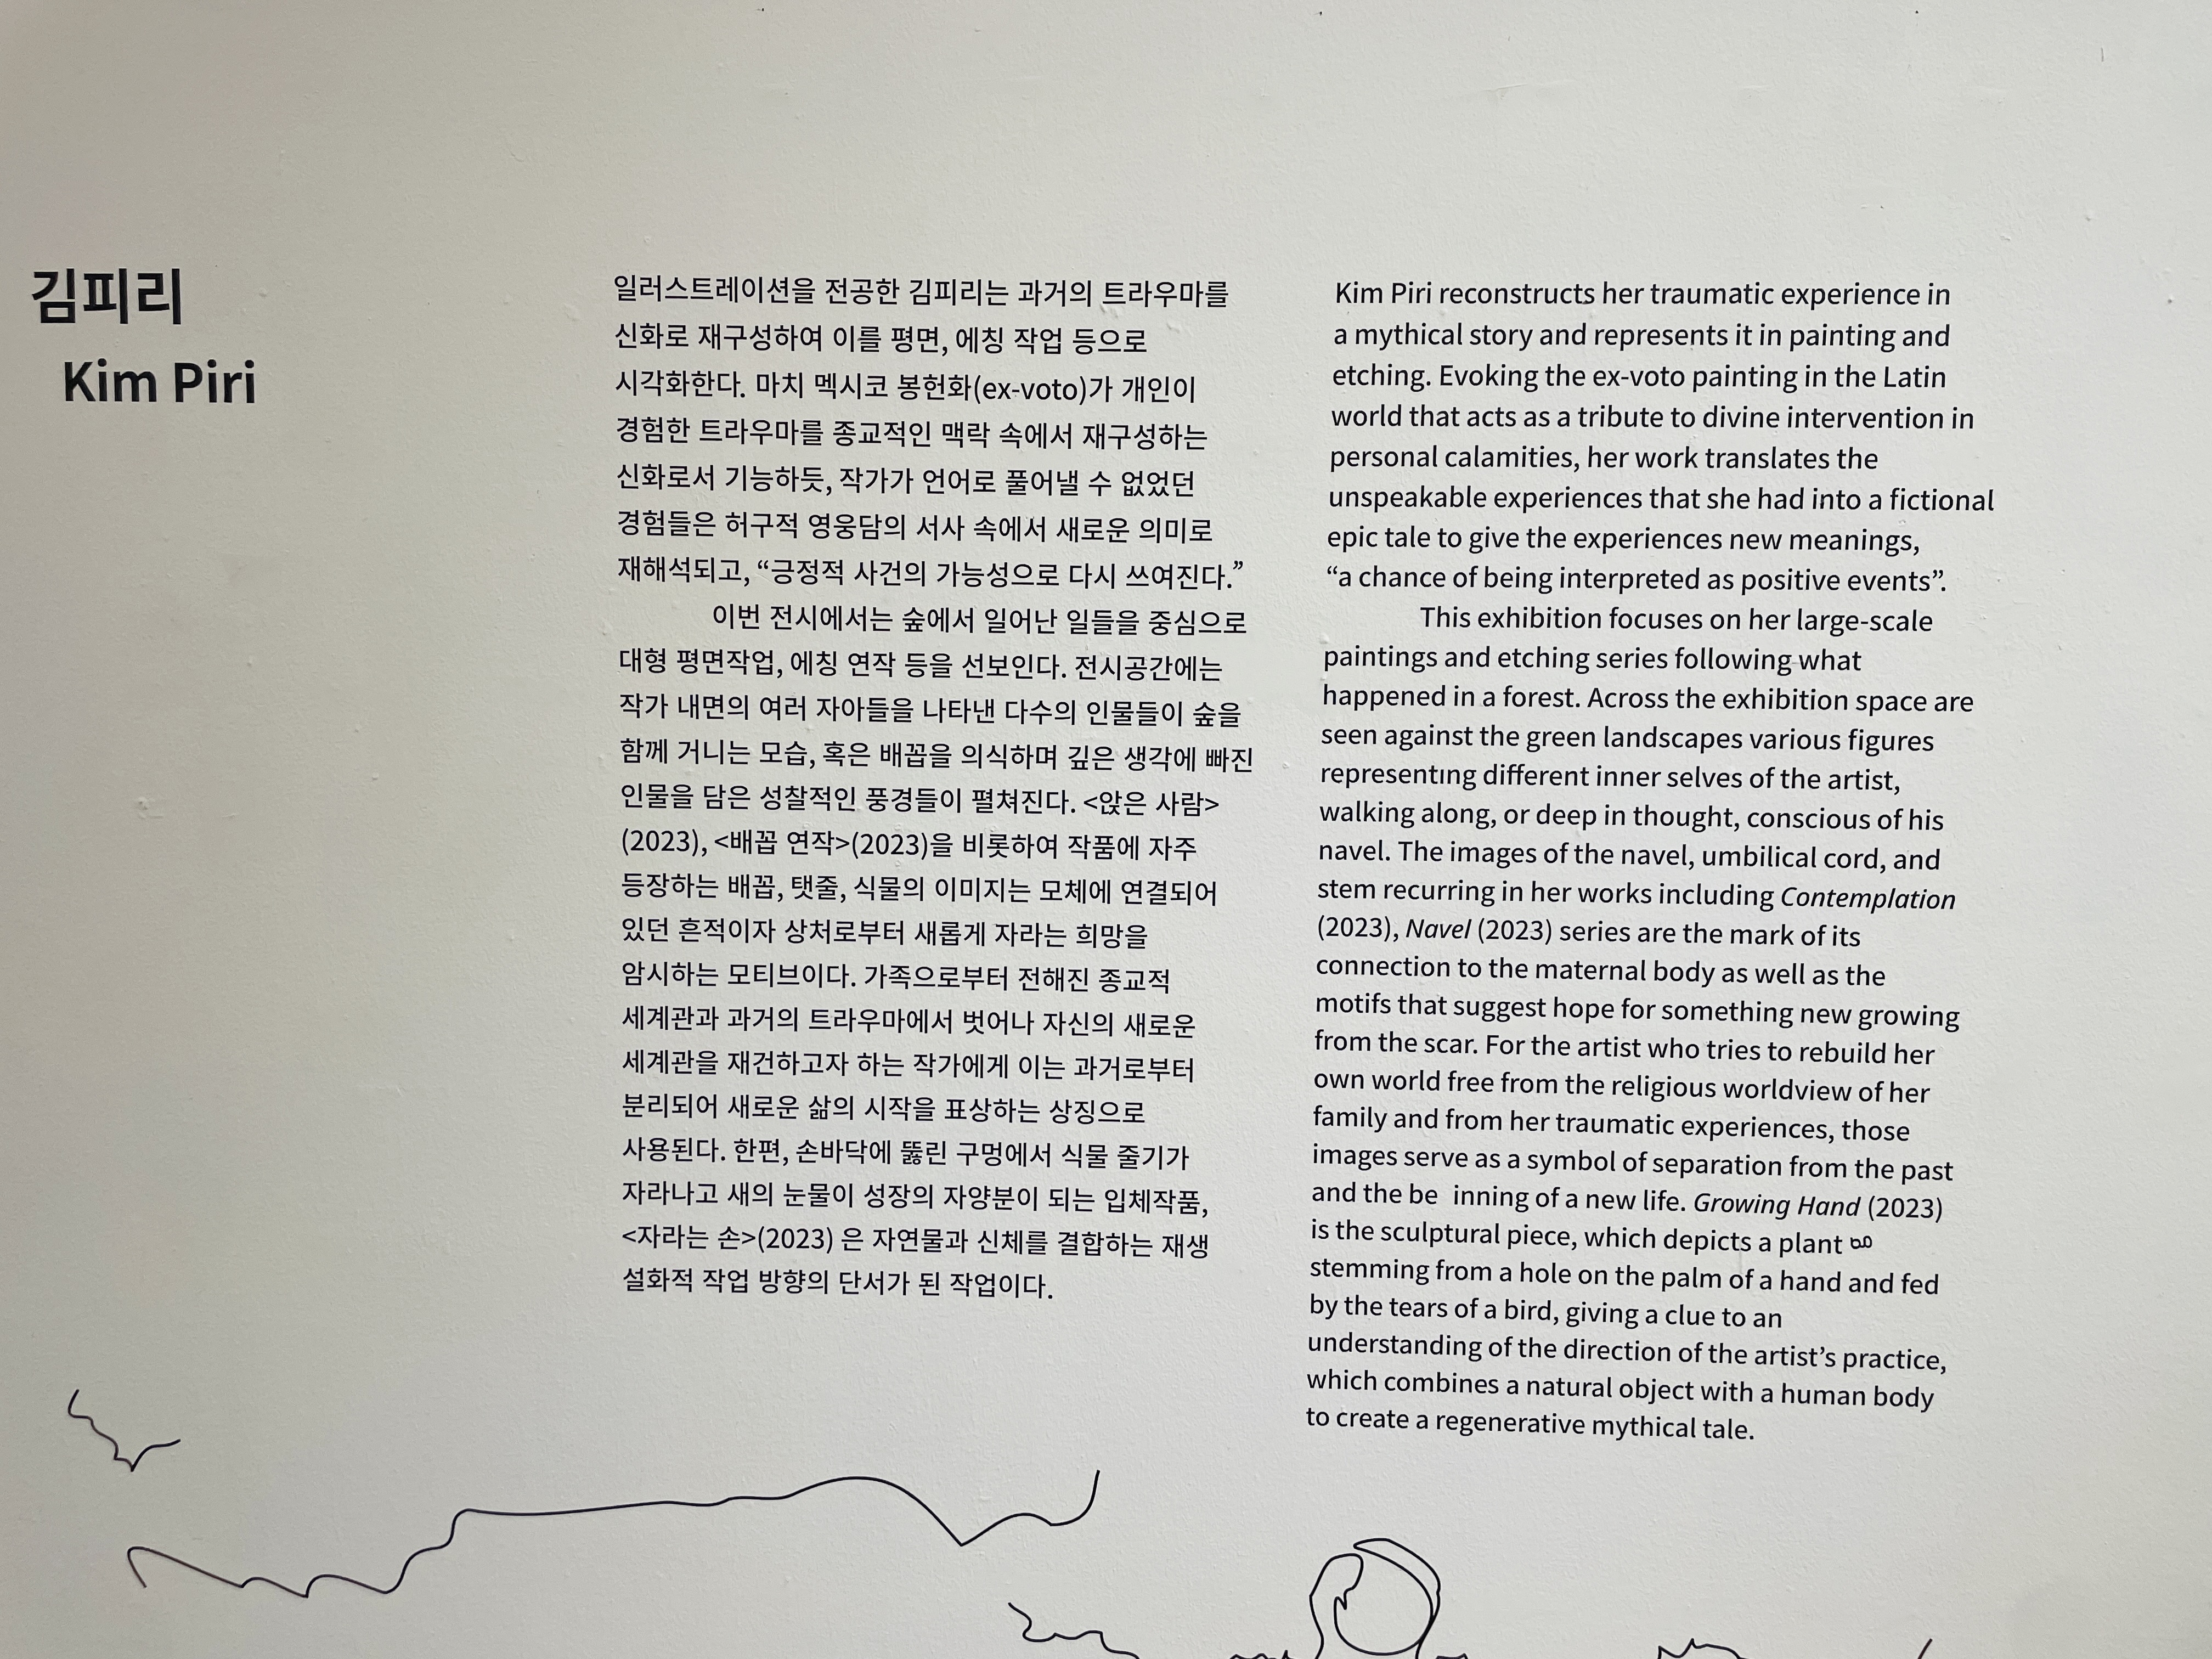 김피리
Kim Piri
일러스트레이션을 전공한 김피리는 과거의 트라우마를
신화로 재구성하여 이를 평면, 에칭 작업 등으로
시각화한다. 마치 멕시코 봉헌화(ex-voto)가 개인이
경험한 트라우마를 종교적인 맥락 속에서 재구성하는
신화로서 기능하듯, 작가가 언어로 풀어낼 수 없었던
경험들은 허구적 영웅담의 서사 속에서 새로운 의미로
재해석되고, “긍정적 사건의 가능성으로 다시 쓰여진다.”
이번 전시에서는 숲에서 일어난 일들을 중심으로
대형 평면작업, 에칭 연작 등을 선보인다. 전시공간에는
작가 내면의 여러 자아들을 나타낸 다수의 인물들이 숲을
함께 거니는 모습, 혹은 배꼽을 의식하며 깊은 생각에 빠진
인물을 담은 성찰적인 풍경들이 펼쳐진다. <앉은 사람>
(2023), <배꼽 연작>(2023)을 비롯하여 작품에 자주
등장하는 배꼽, 탯줄, 식물의 이미지는 모체에 연결되어
있던 흔적이자 상처로부터 새롭게 자라는 희망을
암시하는 모티브이다. 가족으로부터 전해진 종교적
세계관과 과거의 트라우마에서 벗어나 자신의 새로운
세계관을 재건하고자 하는 작가에게 이는 과거로부터
분리되어 새로운 삶의 시작을 표상하는 상징으로
사용된다. 한편, 손바닥에 뚫린 구멍에서 식물 줄기가
자라나고 새의 눈물이 성장의 자양분이 되는 입체작품,
<자라는 손>(2023) 은 자연물과 신체를 결합하는 재생
설화적 작업 방향의 단서가 된 작업이다.
Kim Piri reconstructs her traumatic experience in
a mythical story and represents it in painting and
etching. Evoking the ex-voto painting in the Latin
world that acts as a tribute to divine intervention in
personal calamities, her work translates the
unspeakable experiences that she had into a fictional
epic tale to give the experiences new meanings,
“a chance of being interpreted as positive events”.
This exhibition focuses on her large-scale
paintings and etching series following what
happened in a forest. Across the exhibition space are
seen against the green landscapes various figures
representing different inner selves of the artist,
walking along, or deep in thought, conscious of his
navel. The images of the navel, umbilical cord, and
stem recurring in her works including Contemplation
(2023), Navel (2023) series are the mark of its
connection to the maternal body as well as the
motifs that suggest hope for something new growing
from the scar. For the artist who tries to rebuild her
own world free from the religious worldview of her
family and from her traumatic experiences, those
images serve as a symbol of separation from the past
and the be inning of a new life. Growing Hand (2023)
is the sculptural piece, which depicts a plant g
stemming from a hole on the palm of a hand and fed
by the tears of a bird, giving a clue to an
understanding of the direction of the artist’s practice,
which combines a natural object with a human body
to create a regenerative mythical tale.